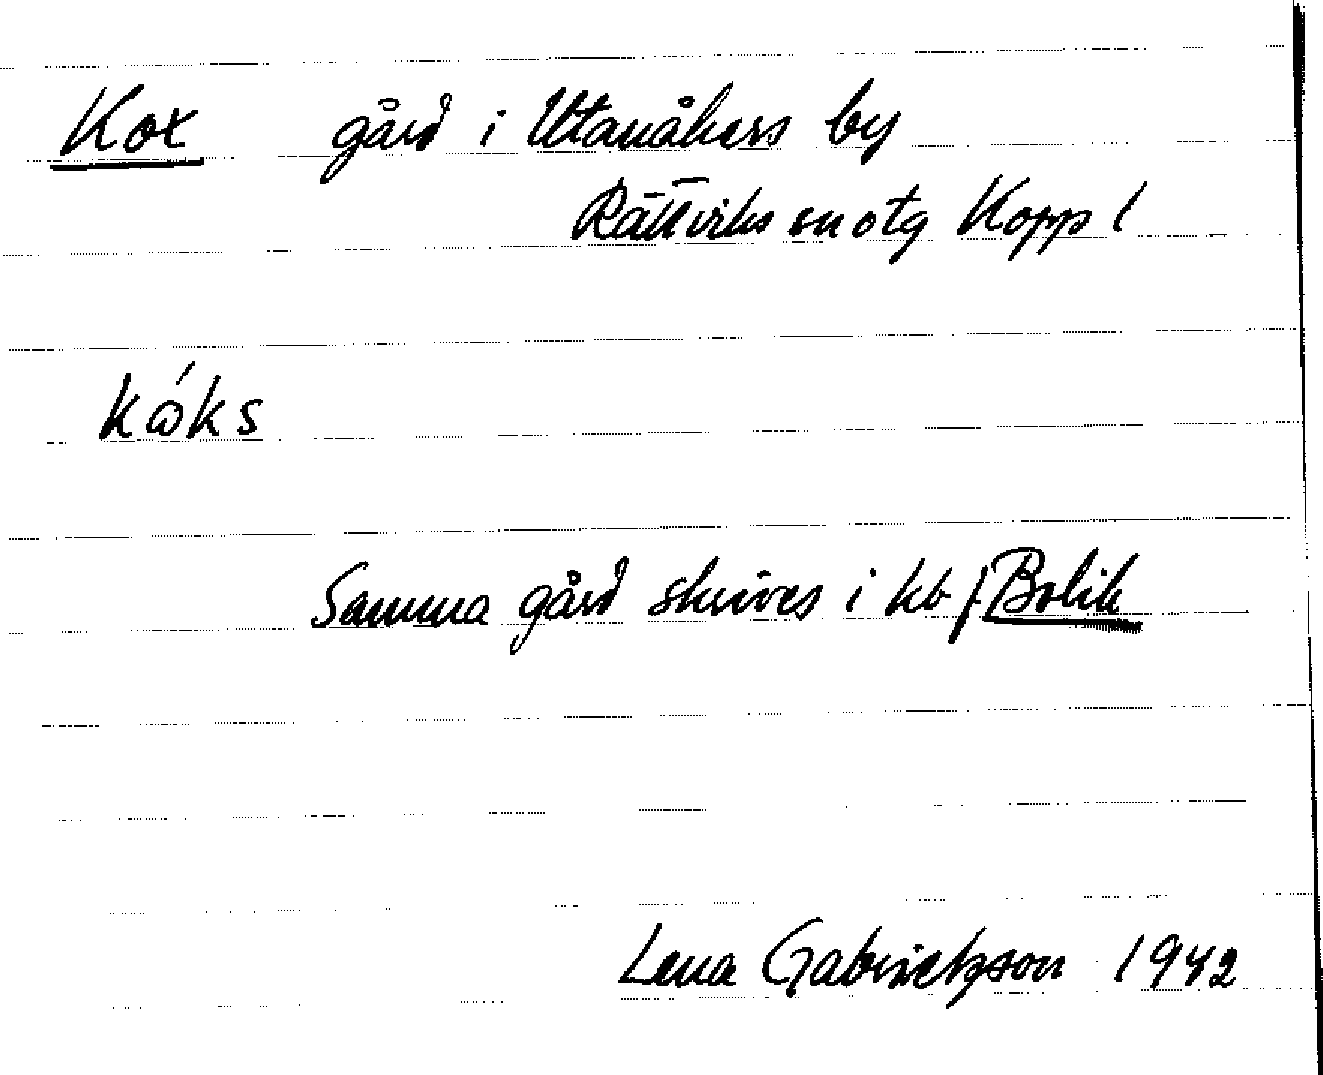 Kox gård i Utanåkers by
Rättviks sn otg Kopp l
kω´ks
Samma gård skrives i kb f Bolik
Lena Gabrielsson 1942